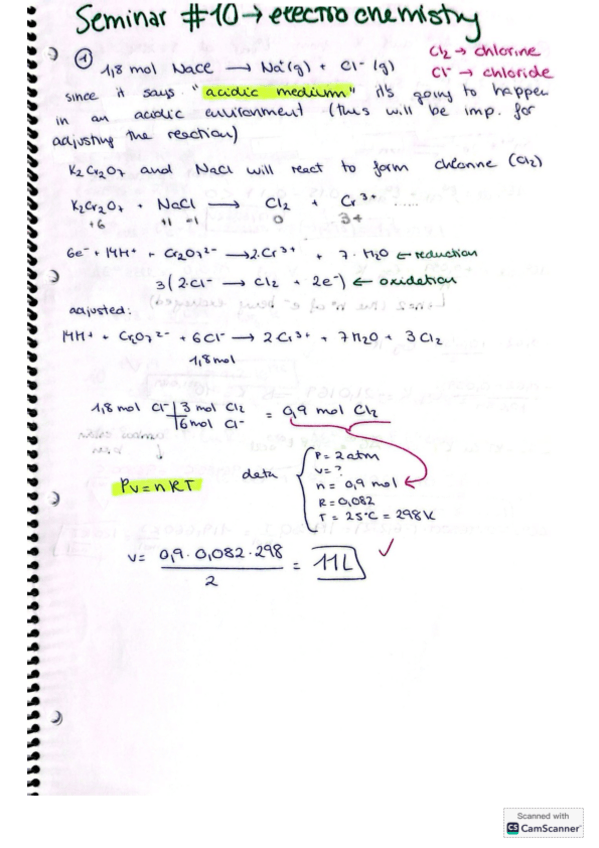 Seminar #10 → electrochemistry
① 1,8 mol NaCl → Na⁺(g) + Cl⁻(g)
Cl₂ → chlorine
Cl⁻ → chloride
since it says "acidic medium" it's going to happen
in an acidic environment (this will be imp. for
adjusting the reaction)
K₂Cr₂O₇ and NaCl will react to form chlorine (Cl₂)
K₂Cr₂O₇ + NaCl → Cl₂ + Cr³⁺ ......
+6 +1 -1 0 3+
6e⁻ + 14H⁺ + Cr₂O₇²⁻ → 2·Cr³⁺ + 7·H₂O ← reduction
3(2·Cl⁻ → Cl₂ + 2e⁻) ← oxidation
adjusted:
14H⁺ + Cr₂O₇²⁻ + 6Cl⁻ → 2Cr³⁺ + 7H₂O + 3Cl₂
1,8mol
1,8 mol Cl⁻ | 3 mol Cl₂ = 0,9 mol Cl₂
6 mol Cl⁻
PV=nRT
data
P = 2 atm
V = ?
n = 0,9 mol
R = 0,082
T = 25°C = 298 K
V= 0,9 · 0,082 · 298 = 11L ✓
2
Scanned with
CS CamScanner